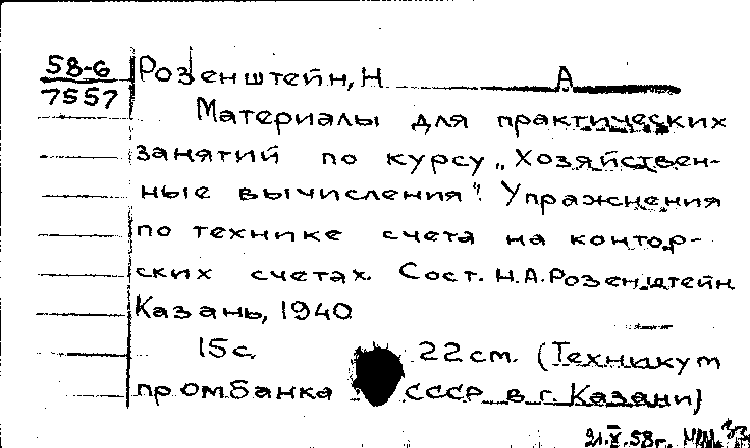 58-6
7557
Розенштейн, Н А
Материалы для практических
занятий по курсу „Хозяйствен-
ные вычисления". Упражнения
по технике счета на контор-
ских счетах. Сост. Н.А.Розенштейн
Казань, 1940
15с. 22см. (Техникум
промбанка СССР в г. Казани)
21.X.58г.